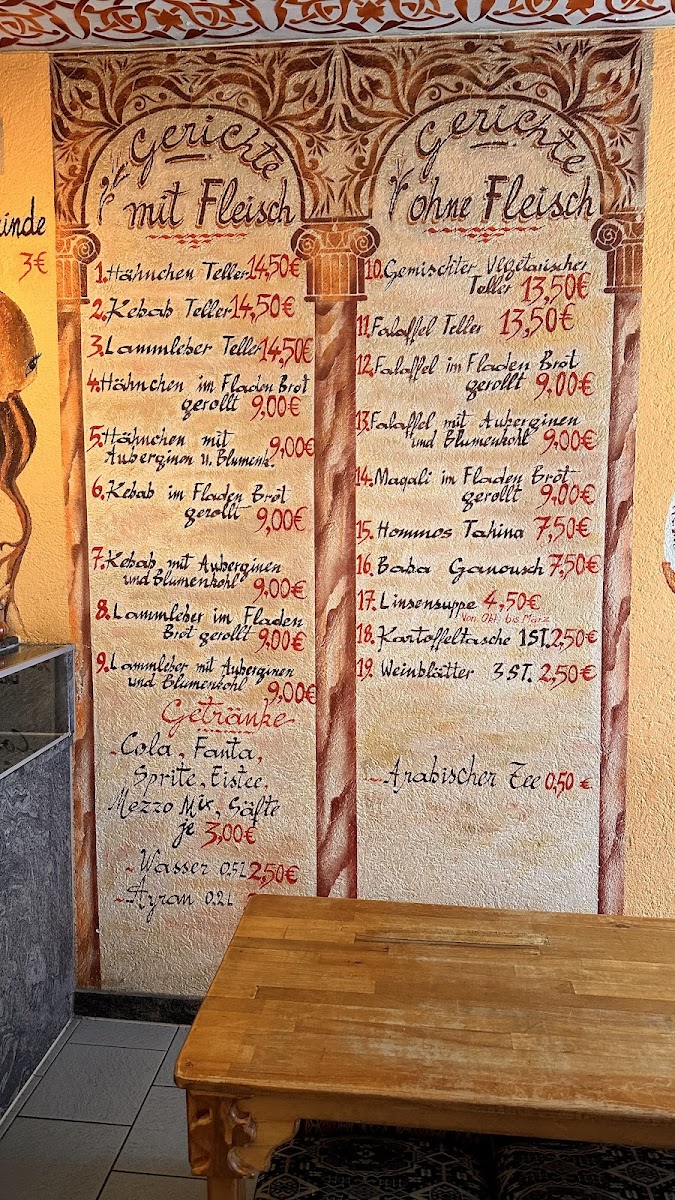 3€
Gerichte
mit Fleisch
1. Hähnchen Teller 14,50€
2. Kebab Teller 14,50€
3. Lammleber Teller 14,50€
4. Hähnchen im Fladen Brot
gerollt 9,00€
5. Hähnchen mit
Auberginen u. Blumenk. 9,00€
6. Kebab im Fladen Brot
gerollt 9,00€
7. Kebab mit Auberginen
und Blumenkohl 9,00€
8. Lammleber im Fladen
Brot gerollt 9,00€
9. Lammleber mit Auberginen
und Blumenkohl 9,00€
Getränke
- Cola, Fanta,
Sprite, Eistee,
Mezzo Mix, Säfte
je 3,00€
- Wasser 0.5L 2,50€
- Ayran 0.2L
Gerichte
ohne Fleisch
10. Gemischter Vegetarischer
Teller 13,50€
11. Falaffel Teller 13,50€
12. Falaffel im Fladen Brot
gerollt 9,00€
13. Falaffel mit Auberginen
und Blumenkohl 9,00€
14. Maqali im Fladen Brot
gerollt 9,00€
15. Hommos Tahina 7,50€
16. Baba Ganousch 7,50€
17. Linsensuppe 4,50€
Von Okt. bis März
18. Kartoffeltasche 1ST. 2,50€
19. Weinblätter 3 ST. 2,50€
- Arabischer Tee 0,50 €